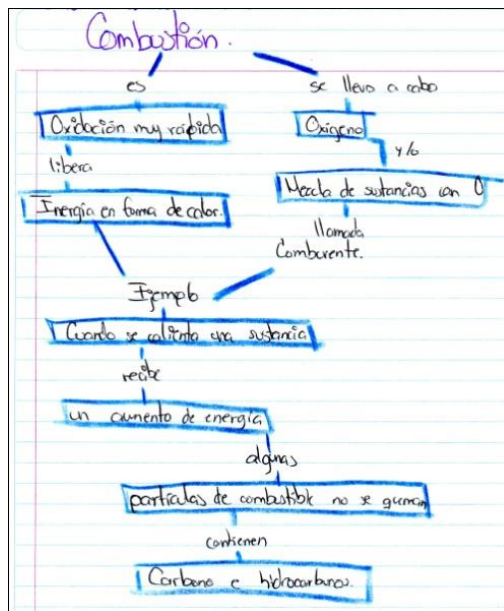 Combustión.
es
se llevo a cabo
Oxidación muy rápida
Oxígeno
libera
y/o
Energía en forma de calor.
Mezcla de sustancias con O
llamada
Comburente.
Ejemplo
Cuando se calienta una sustancia
recibe
un aumento de energía
algunas
partículas de combustible no se
contienen
Carbono e hidrocarburos.